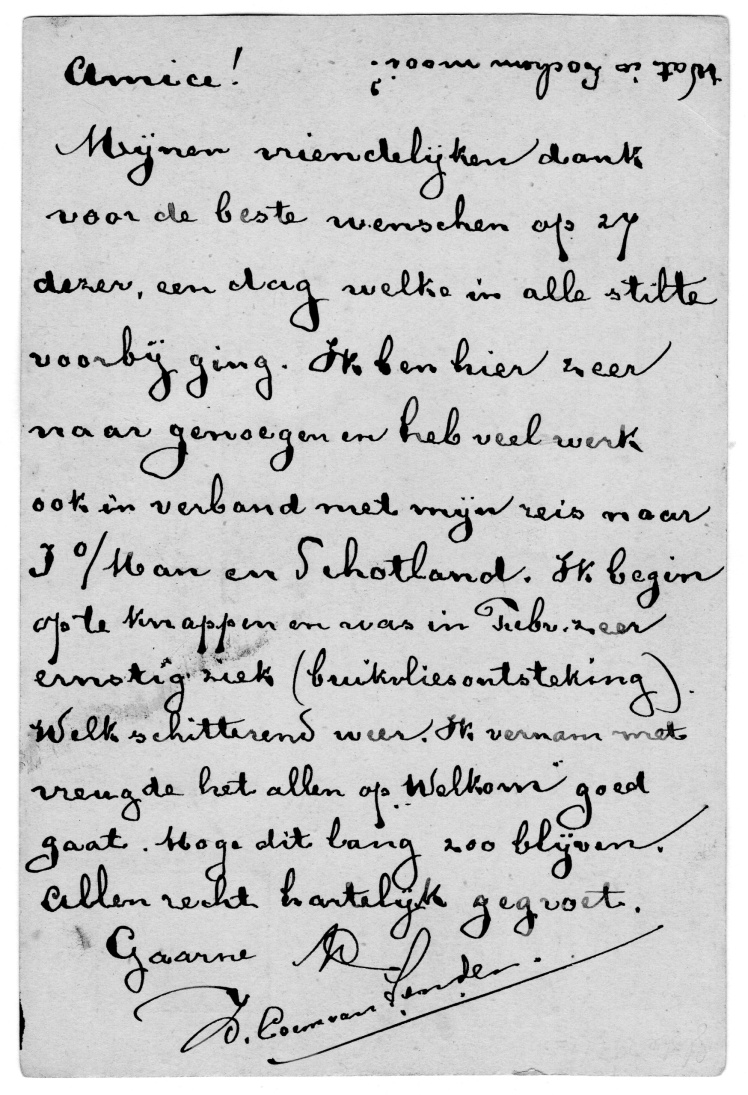 Amice!
Wat is Lochem mooi?
Mijnen vriendelijken dank
voor de beste wenschen op 27
dezer, een dag welke in alle stilte
voorbij ging. Ik ben hier zeer
naar genoegen en heb veel werk
ook in verband met mijn reis naar
I o/Man en Schotland. Ik begin
op te knappen en was in Febr. zeer
ernstig ziek (buikvliesontsteking).
Welk schitterend weer. Ik vernam met
vreugde het allen op "Welkom" goed
gaat. Moge dit lang zoo blijven.
Allen recht hartelijk gegroet.
Gaarne